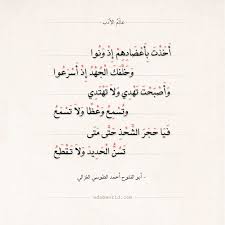 عالم الأدب
أَخَذْتَ بِأَعْضَادِهِمْ إِذْ وَنُوا
وَخَلَّفَكَ الْجُهْدُ إِذْ أَسْرَعُوا
وَأَصْبَحْتَ تَهْدِي وَلَا تَهْتَدِي
وَتُسْمِعُ وَعْظًا وَلَا تَسْمَعُ
فَيَا حَجَرَ الشَّحْذِ حَتَّى مَتَى
تَسُنُّ الْحَدِيدَ وَلَا تَقْطَعُ
- أبو الفتوح أحمد الطوسي الغزالي -
adabworld.com